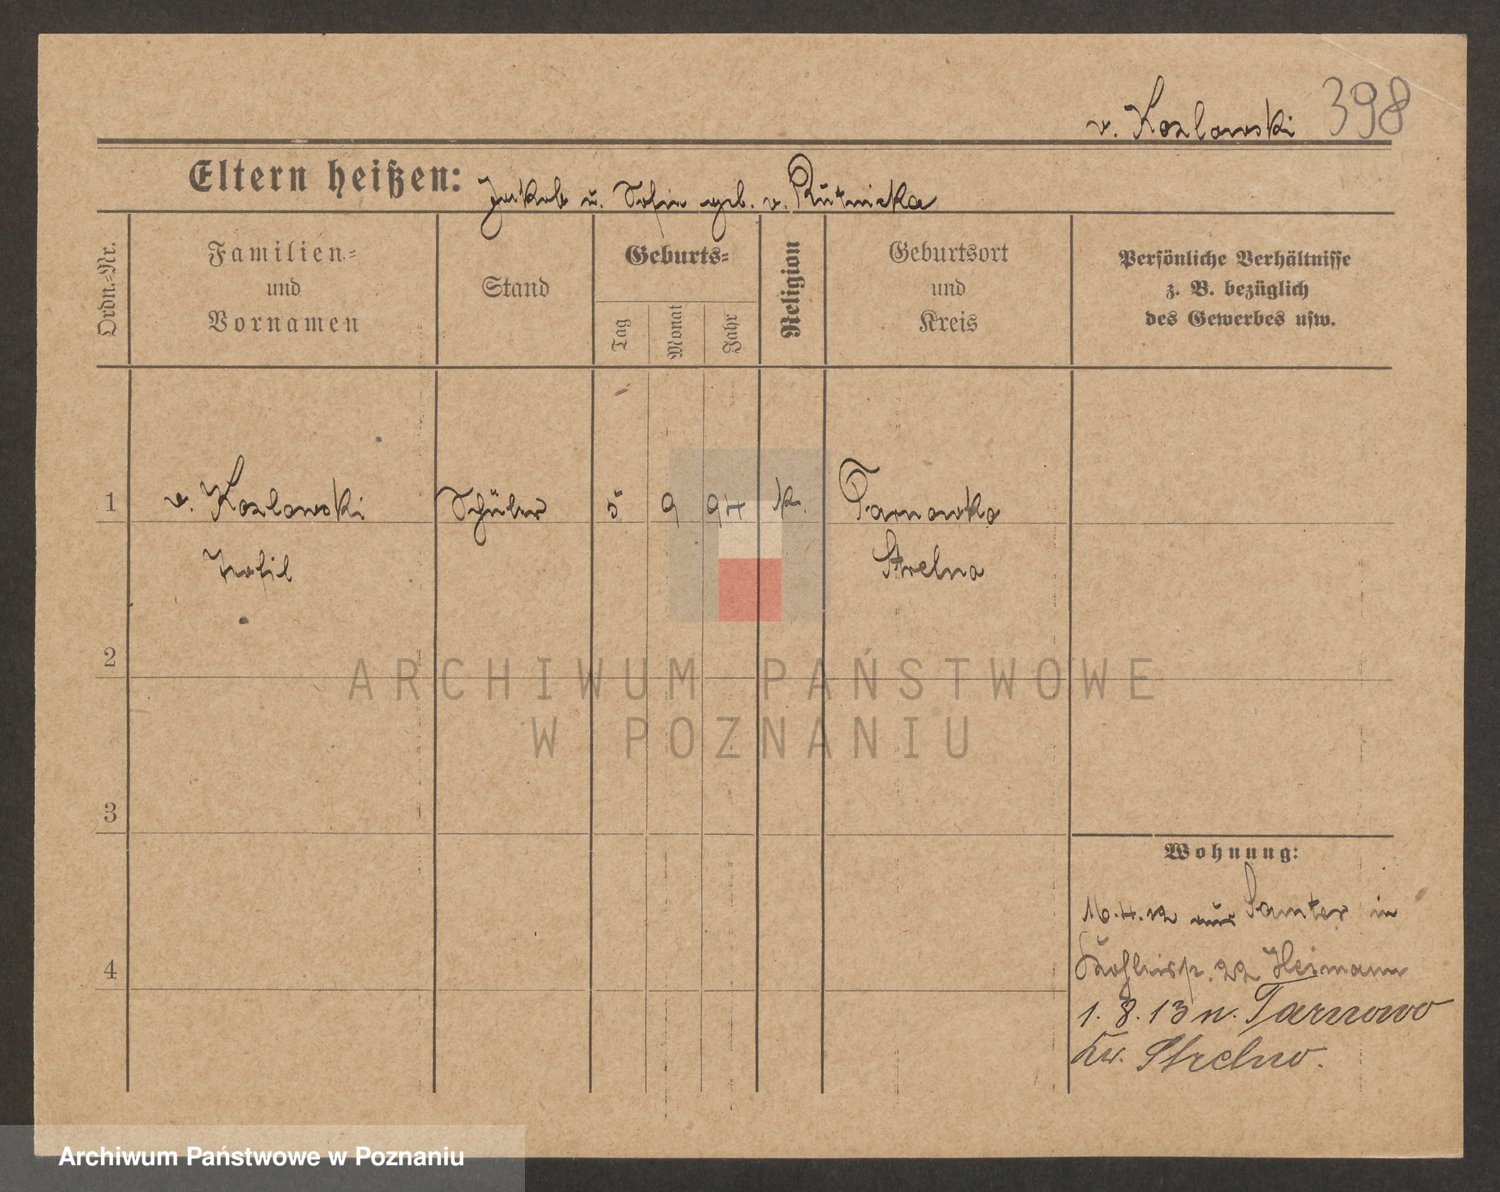 v. Kozlowski 398
Eltern heißen: Jakob u. Sofie geb. v. Rutnicka
Ordn.-Nr.
Familien-
und
Vornamen
Stand
Geburts-
Tag
Monat
Jahr
Religion
Geburtsort
und
Kreis
Persönliche Verhältnisse
z. B. bezüglich
des Gewerbes usw.
1 v. Kozlowski Schüler 5 9 94 k. Tarnowko
Strelno
2
ARCHIWUM PAŃSTWOWE
W POZNANIU
3
Wohnung:
16.4.12 aus Samter in
22 Heimann
4
1. 8. 13 n. Tarnowo
Kr. Strelno.
Archiwum Państwowe w Poznaniu